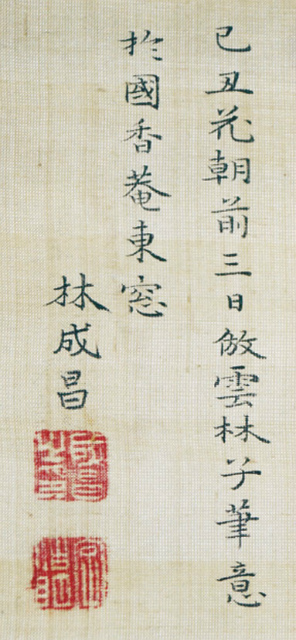 己丑花朝前三日倣雲林子筆意
扵國香菴東窓
林成昌